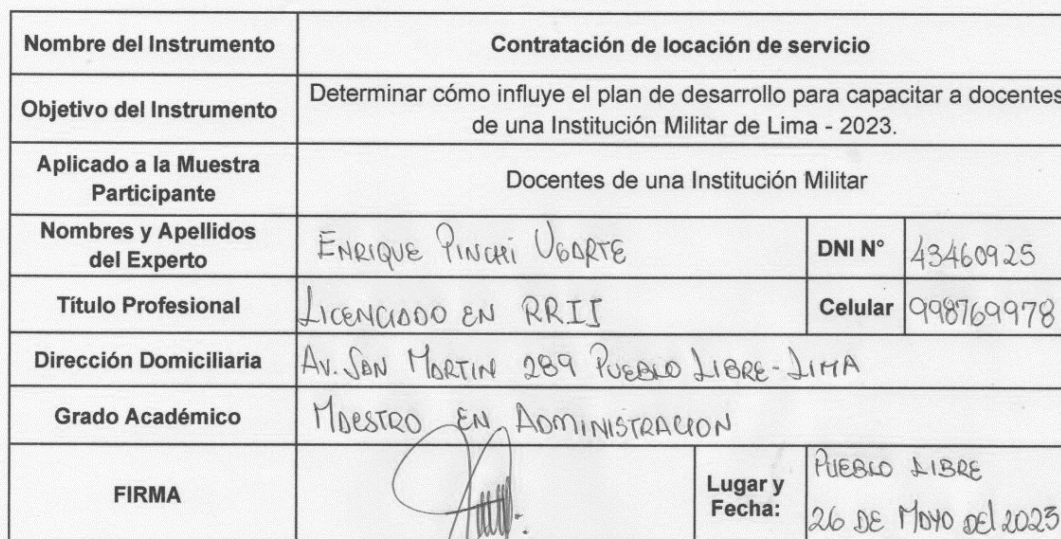 Nombre del Instrumento
Contratación de locación de servicio
Objetivo del Instrumento
Determinar cómo influye el plan de desarrollo para capacitar a docentes
de una Institución Militar de Lima - 2023.
Aplicado a la Muestra
Participante
Docentes de una Institución Militar
Nombres y Apellidos
del Experto
ENRIQUE PINCHI UGARTE
DNI N°
43460925
Título Profesional
LICENCIADO EN RRII
Celular
998769978
Dirección Domiciliaria
AV. SAN MARTIN 289 PUEBLO LIBRE - LIMA
Grado Académico
MAESTRO EN ADMINISTRACION
FIRMA
Lugar y
Fecha:
PUEBLO LIBRE
26 DE MAYO DEL 2023